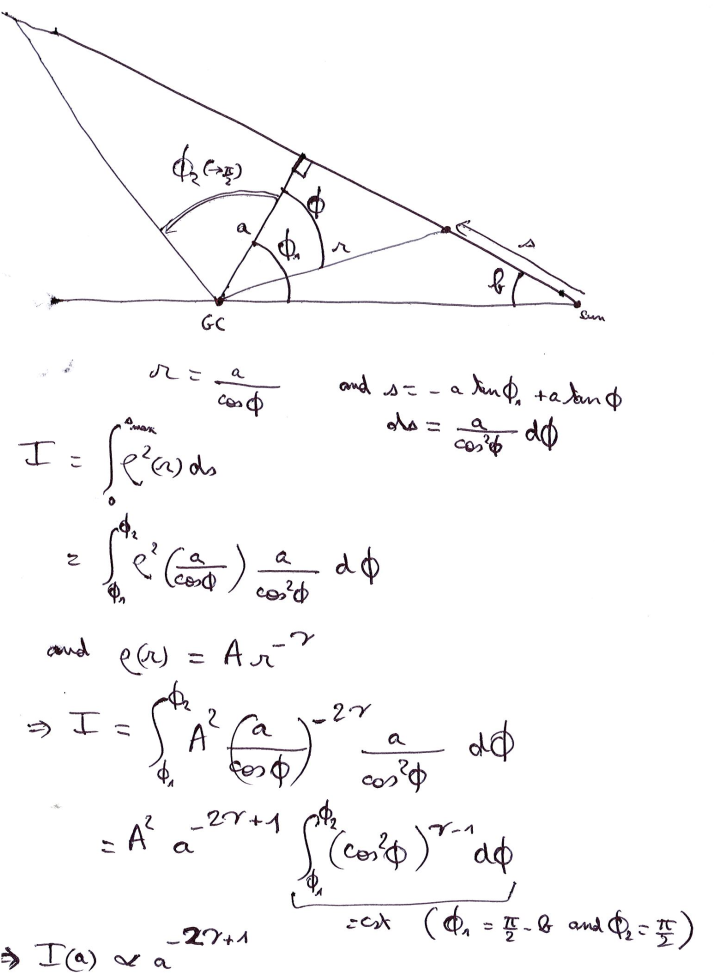 ϕ₂ (→π/2)
ϕ
a
ϕ₁
r
s
b
GC
Sun
r = a / cosϕ and s = - a tanϕ₁ + a tanϕ
ds = a / cos²ϕ dϕ
I = ∫₀^{s_max} ρ²(r) ds
= ∫_{ϕ₁}^{ϕ₂} ρ² (a / cosϕ) a / cos²ϕ dϕ
and ρ(r) = A r^{-γ}
⇒ I = ∫_{ϕ₁}^{ϕ₂} A² (a / cosϕ)^{-2γ} a / cos²ϕ dϕ
= A² a^{-2γ+1} ∫_{ϕ₁}^{ϕ₂} (cos²ϕ)^{γ-1} dϕ
= cst (ϕ₁ = π/2 - b and ϕ₂ = π/2)
⇒ I(a) ∝ a^{-2γ+1}